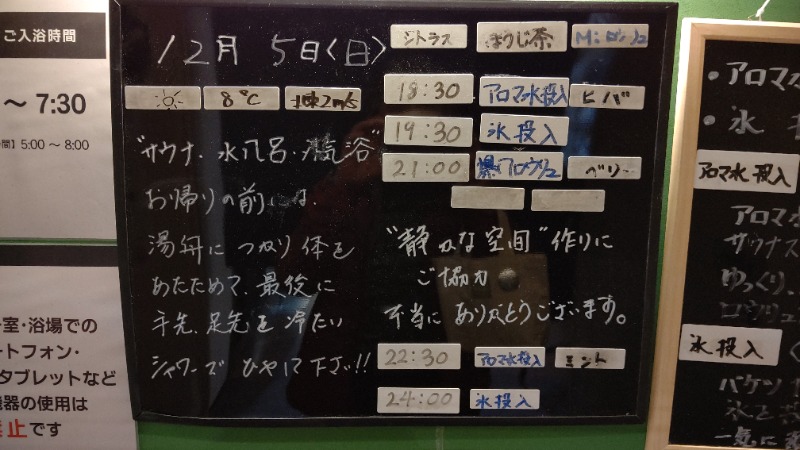 ご入浴時間
～ 7:30
5:00 ～ 8:00
室・浴場での
ートフォン・
タブレットなど
機器の使用は
止です
12月 5日(日)
8℃
2m/s
"サウナ・水風呂・外気浴"
お帰りの前には、
湯舟につかり体を
あたためて、最後に
手先、足先を冷たい
シャワーで ひやして下さい!!
シトラス ほうじ茶
18:30 アロマ水投入 ヒバ
19:30 氷投入
21:00 爆ロウリュ ベリー
"静かな空間"作りに
ご協力
本当に ありがとうございます。
22:30 アロマ水投入 ミント
24:00 氷投入
・アロマ水
・氷 投
アロマ水 投入
アロマ
サウナス
ゆっくり、
ロウリュ
氷投入
バケツ
氷を
一気に